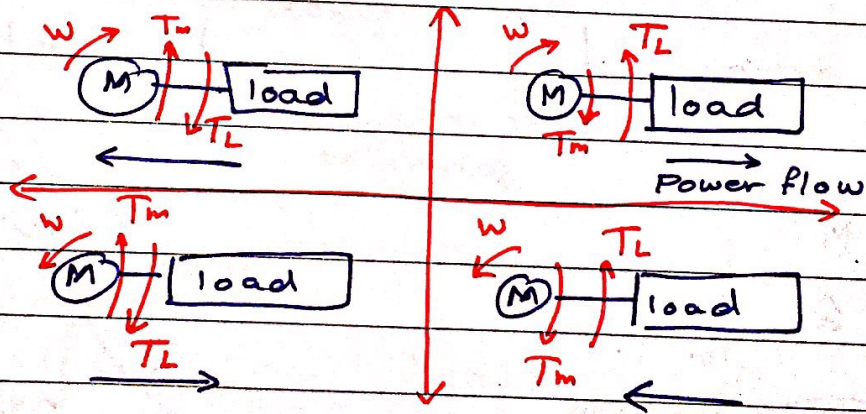 w Tm
M load
TL
w TL
M load
Tm
Power flow
w Tm
M load
TL
w TL
M load
Tm